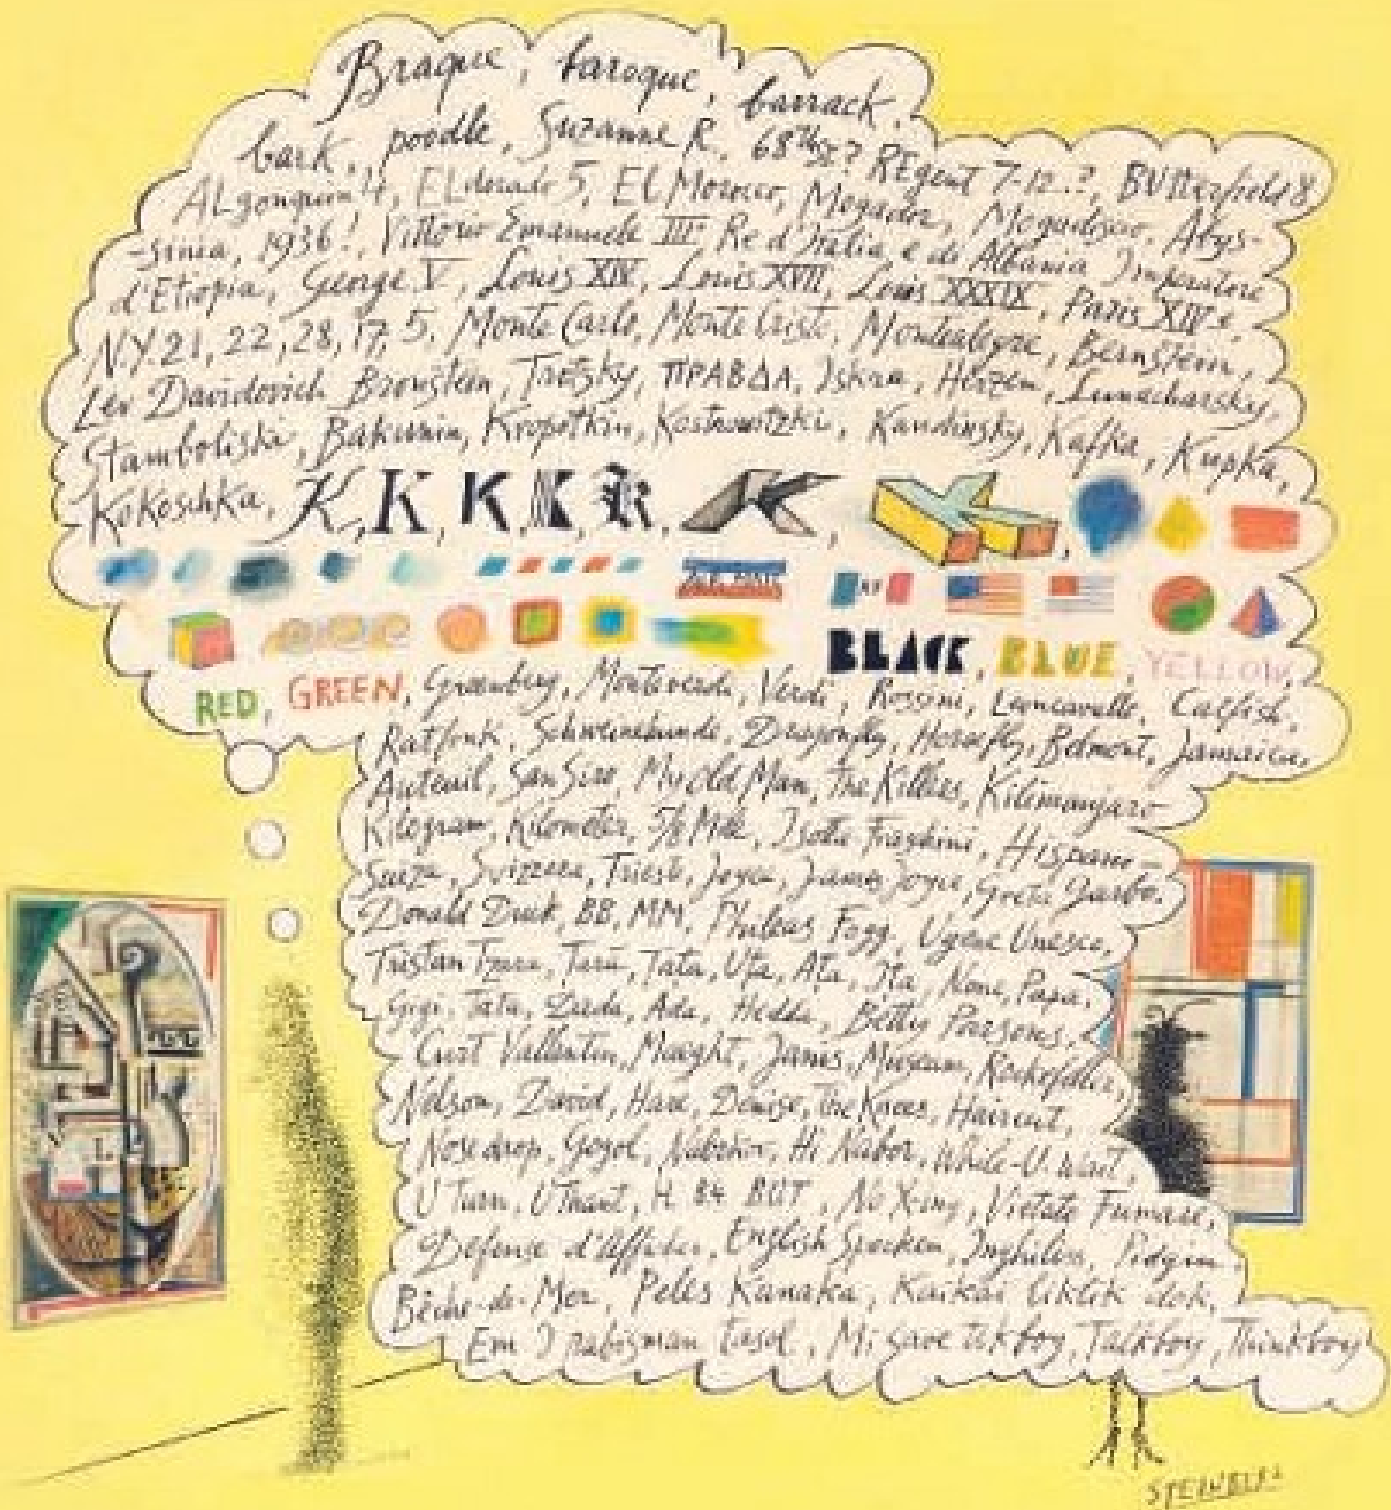 Braque, baroque, barrack,
bark, poodle, Suzanne R. 68th St? REgent 7-12..?, BUtterfield 8
ALgonquin 4, ELdorado 5, El Morocco, Mogador, Mogadiscio, Abys-
-sinia, 1936!, Vittorio Emanuele III Re d'Italia e di Albania Imperatore
d'Etiopia, George V, Louis XIV, Louis XVII, Louis XXXIX, Paris XIVe,
N.Y. 21, 22, 28, 17, 5. Monte Carlo, Monte Cristo, Montealegre, Bernstein,
Lev Davidovich Bronstein, Trotsky, ПРАВДА, Iskra, Herzen, Lunacharsky,
Stambolisky, Bakunin, Kropotkin, Kostrowitzki, Kandinsky, Kafka, Kupka,
Kokoschka, K, K, K, K, K, K, K,
BLACK, BLUE, YELLOW,
RED, GREEN, Greenberg, Monteverdi, Verdi, Rossini, Leoncavallo, Catfish,
Ratfink, Schweinehunde, Dragonfly, Horsefly, Belmont, Jamaica,
Auteuil, San Siro, My Old Man, The Killers, Kilimanjaro
Kilogram, Kilometer, 5/8 Mile, Isotta-Fraschini, Hispano-
Suiza, Svizzera, Trieste, Joyce, James Joyce, Greta Garbo.
Donald Duck, BB, MM, Phileas Fogg, Ugene Unesco,
Tristan Tzara, Tara, Tata, Uta, Ata, Ita, None, Papa,
Gigi, Tata, Dada, Ada, Hedda, Betty Parsons,
Curt Valentin, Maeght, Janis, Museum, Rockefeller,
Nelson, David, Hare, Denise, The Knees, Haircut,
Nosedrop, Gogol, Nabokov, Hi Nabor, While-U-Wait,
U Turn, U Thant, H 84 BUT, No X-ing, Vietato Fumare,
Defense d'Afficher, English Spoken, Pidgin,
Bêche-de-Mer, Peles Kanaka, Kaikai liklik dok,
Em I tasol, Mi save tokboy, Talkboy, Thinkboy
STEINBERG